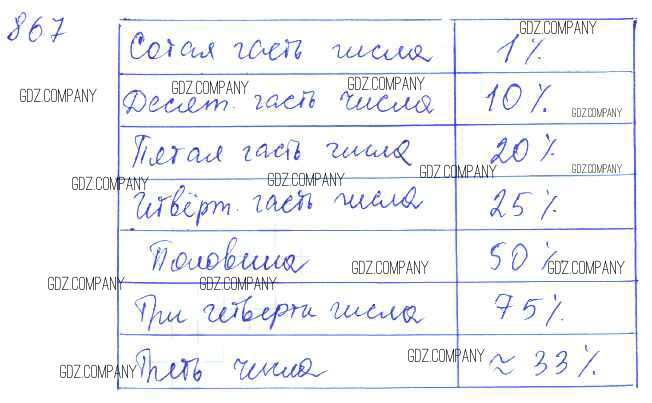 867
GDZ.COMPANY
Сотая часть числа 1%
GDZ.COMPANY GDZ.COMPANY GDZ.COMPANY
Десят. часть числа 10%
GDZ.COMPANY
Пятая часть числа 20%
GDZ.COMPANY GDZ.COMPANY GDZ.COMPANY GDZ.COMPANY
Четвёрт. часть числа 25%
Половина 50%
GDZ.COMPANY GDZ.COMPANY
GDZ.COMPANY GDZ.COMPANY
Три четверти числа 75%
GDZ.COMPANY GDZ.COMPANY
Треть числа ≈ 33%